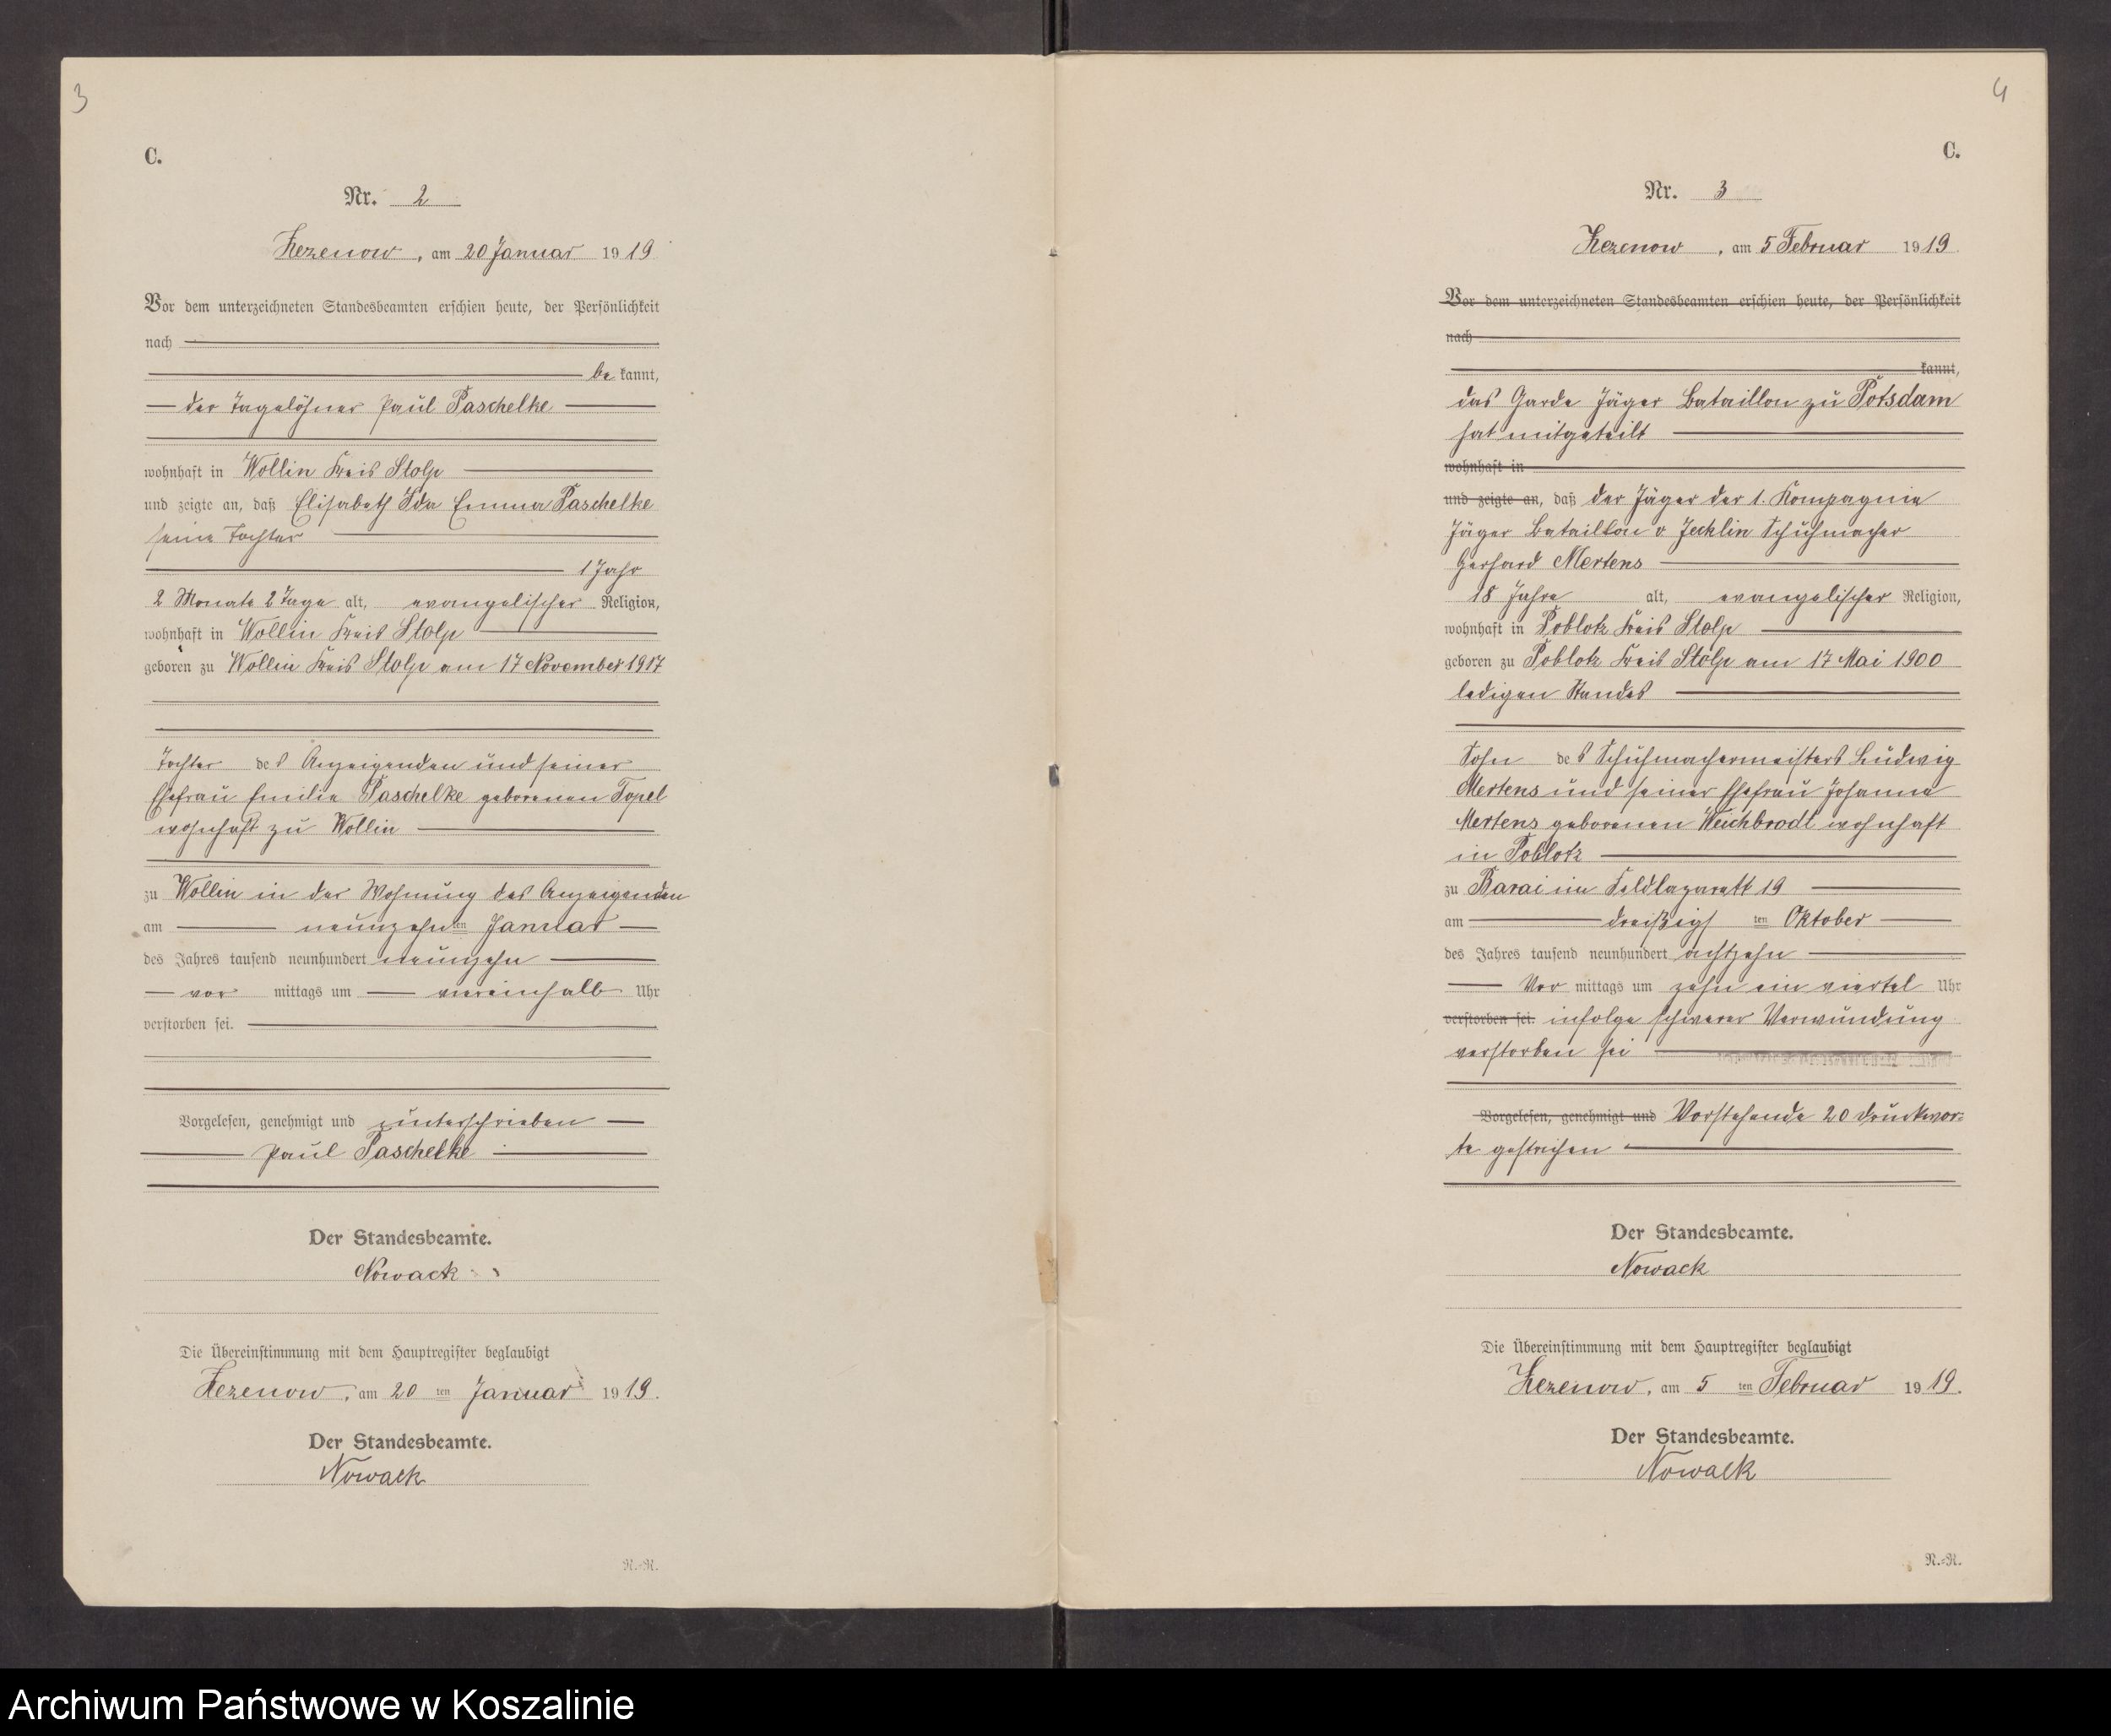 3
C.
Nr. 2
Zezenow, am 20 Januar 1919
Vor dem unterzeichneten Standesbeamten erschien heute, der Persönlichkeit
nach
be kannt,
der Tagelöhner Paul Paschelke
wohnhaft in Wollin Kreis Stolp
und zeigte an, daß Elisabeth Ida Emma Paschelke
seine Tochter
1 Jahr
2 Monate 2 Tage alt, evangelischer Religion,
wohnhaft in Wollin Kreis Stolp
geboren zu Wollin Kreis Stolp am 17 November 1917
Tochter des Anzeigenden und seiner
Ehefrau Emilie Paschelke geborenen Topel
wohnhaft zu Wollin
zu Wollin in der Wohnung des Anzeigenden
am neunzehnten Januar
des Jahres tausend neunhundert neunzehn
vor mittags um viereinhalb Uhr
verstorben sei.
Vorgelesen, genehmigt und unterschrieben
Paul Paschelke
Der Standesbeamte.
Nowack
Die Übereinstimmung mit dem Hauptregister beglaubigt
Zezenow, am 20 ten Januar 1919.
Der Standesbeamte.
Nowack
R.-R.
4
C.
Nr. 3
Zezenow, am 5 Februar 1919.
Vor dem unterzeichneten Standesbeamten erschien heute, der Persönlichkeit
nach
kannt,
das Garde Jäger Bataillon zu Potsdam
hat mitgeteilt
wohnhaft in
und zeigte an, daß der Jäger der 1. Kompagnie
Jäger Bataillon v Jecklin Schuhmacher
Gerhard Mertens
18 Jahre alt, evangelischer Religion,
wohnhaft in Poblotz Kreis Stolp
geboren zu Poblotz Kreis Stolp am 17 Mai 1900
ledigen Standes
Sohn des Schuhmachermeisters Ludwig
Mertens und seiner Ehefrau Johanne
Mertens geborenen Weichbrodt wohnhaft
in Poblotz
zu Barai im Feldlazarett 19
am dreißigsten Oktober
des Jahres tausend neunhundert achtzehn
Vor mittags um zehn ein viertel Uhr
verstorben sei. infolge schwerer Verwundung
verstorben sei
Vorgelesen, genehmigt und Vorstehende 20 Druckwor-
te gestrichen
Der Standesbeamte.
Nowack
Die Übereinstimmung mit dem Hauptregister beglaubigt
Zezenow, am 5 ten Februar 1919.
Der Standesbeamte.
Nowack
R.-R.
Archiwum Państwowe w Koszalinie